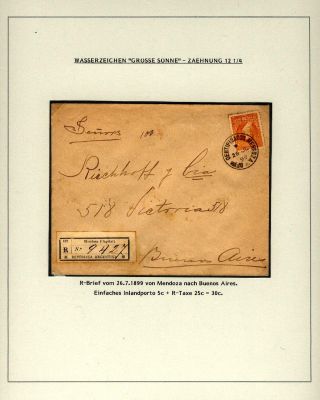 WASSERZEICHEN "GROSSE SONNE" - ZAEHNUNG 12 1/4
Señores
Kirchhoff y Cia
518 Victoria 518
Buenos Aires
Mendoza (Capital)
R No 9427
REPUBLICA ARGENTINA
R-Brief vom 26.7.1899 von Mendoza nach Buenos Aires.
Einfaches Inlandporto 5c + R-Taxe 25c = 30c.